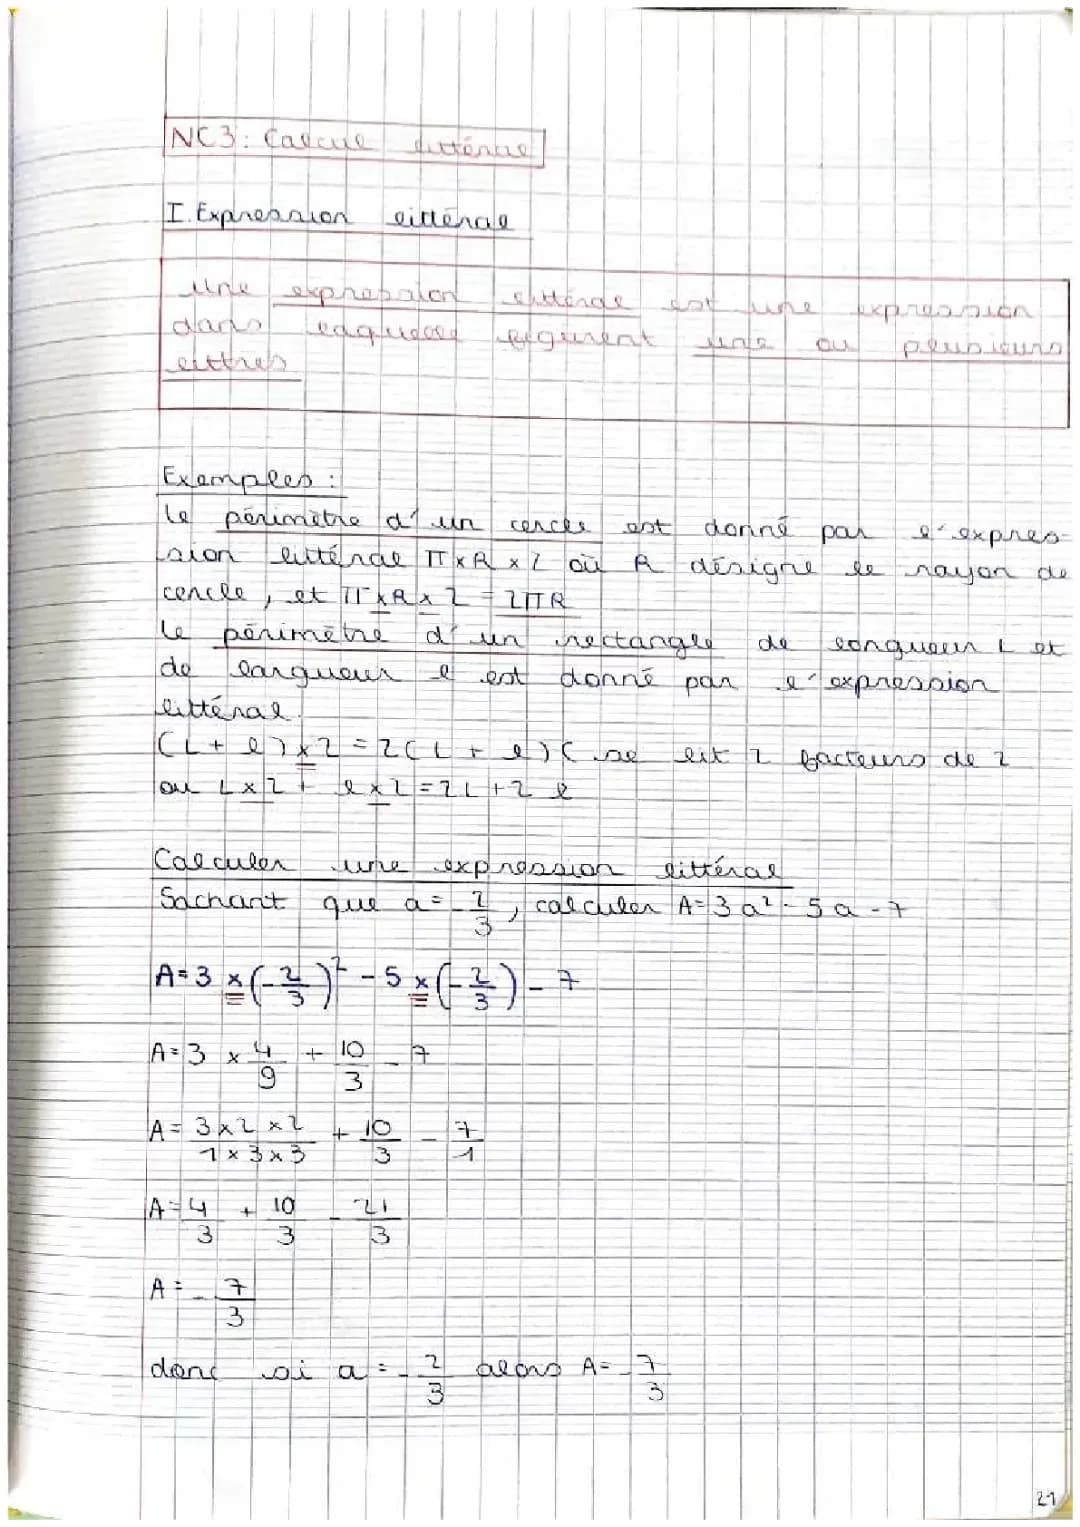 NC3: Calcul littéral
I. Expression littéral
Une expression littérale est une expression
dans laquelle figurent une ou plusieurs
lettres
Exemples :
Le périmètre d'un cercle est donné par l'expres-
sion littéral π×R×2 où R désigne le rayon de
cercle, et π×R×2 = 2πR
Le périmètre d'un rectangle de longueur L et
de largueur l est donné par l'expression
littéral.
(L + l)×2 = 2(L + l) (se lit 2 facteurs de 2
ou L×2 + l×2 = 2L + 2l
Calculer une expression littéral
Sachant que a = -2/3, calculer A = 3a² - 5a - 7
A = 3 × (-2/3)² - 5 × (-2/3) - 7
A = 3 × 4/9 + 10/3 - 7
A = 3×2×2/1×3×3 + 10/3 - 7/1
A = 4/3 + 10/3 - 21/3
A = -7/3
donc si a = -2/3 alors A = -7/3
21